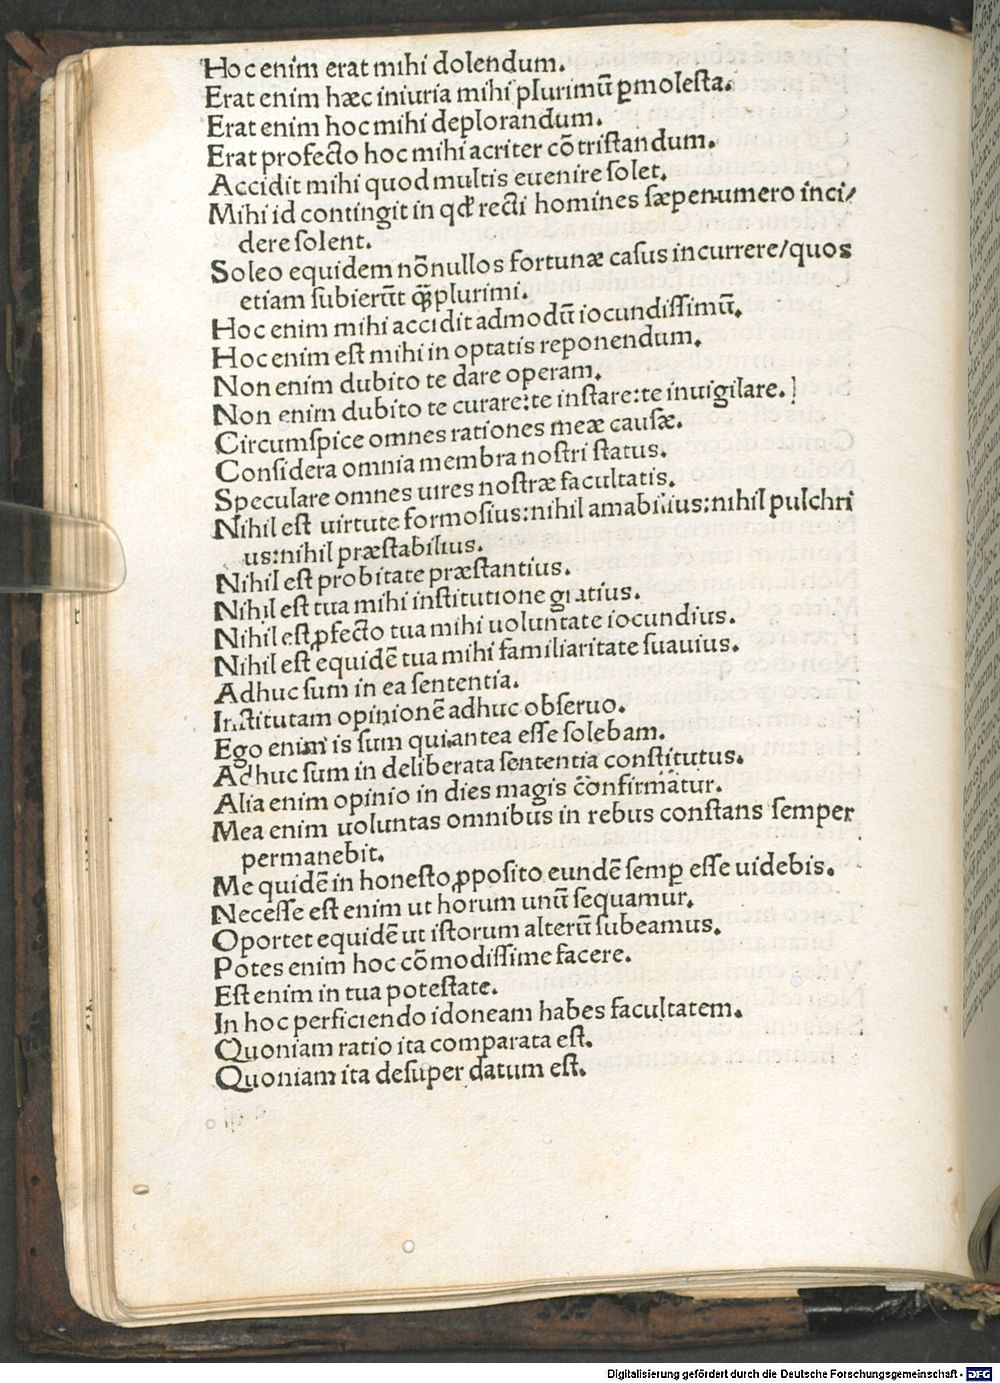 Hoc enim erat mihi dolendum.
Erat enim hæc iniuria mihi plurimū ꝑmolesta.
Erat enim hoc mihi deplorandum.
Erat profecto hoc mihi acriter cōtristandum.
Accidit mihi quod multis euenire solet.
Mihi id contingit in qđ recti homines sæpenumero inci/
dere solent.
Soleo equidem nōnullos fortunæ casus incurrere/quos
etiam subierūt q̃plurimi.
Hoc enim mihi accidit admodū iocundissimū.
Hoc enim est mihi in optatis reponendum.
Non enim dubito te dare operam.
Non enim dubito te curare:te instare:te inuigilare.
Circumspice omnes rationes meæ causæ.
Considera omnia membra nostri status.
Speculare omnes uires nostræ facultatis.
Nihil est uirtute formosius:nihil amabilius:nihil pulchri
us:nihil præstabilius.
Nihil est probitate præstantius.
Nihil est tua mihi institutione gratius.
Nihil est ꝓfecto tua mihi uoluntate iocundius.
Nihil est equidē tua mihi familiaritate suauius.
Adhuc sum in ea sententia.
Institutam opinionē adhuc obseruo.
Ego enim is sum qui antea esse solebam.
Adhuc sum in deliberata sententia constitutus.
Alia enim opinio in dies magis cōnfirmatur.
Mea enim uoluntas omnibus in rebus constans semper
permanebit.
Me quidē in honesto ꝓposito eundē semꝑ esse uidebis.
Necesse est enim ut horum unū sequamur.
Oportet equidē ut istorum alterū subeamus.
Potes enim hoc cōmodissime facere.
Est enim in tua potestate.
In hoc perficiendo idoneam habes facultatem.
Quoniam ratio ita comparata est.
Quoniam ita desuper datum est.
Digitalisierung gefördert durch die Deutsche Forschungsgemeinschaft - DFG